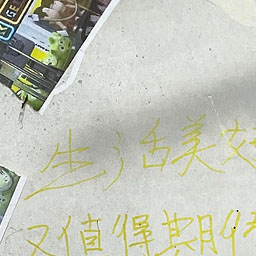 生活美好
又值得期待